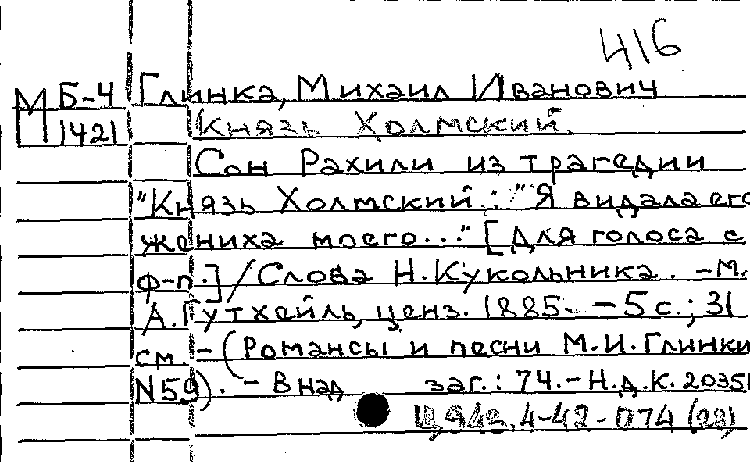 416
М Б-4 Глинка, Михаил Иванович
1421 Князь Холмский.
Сон Рахили из трагедии
"Князь Холмский": "Я видала его
жениха моего..." [Для голоса с
ф-п.] / Слова Н. Кукольника. - М.
А. Гутхейль, ценз. 1885. - 5 с.; 31
см - (Романсы и песни М.И. Глинки
N59). - В над заг.: 74. - Н.д.к. 2035
4-42-